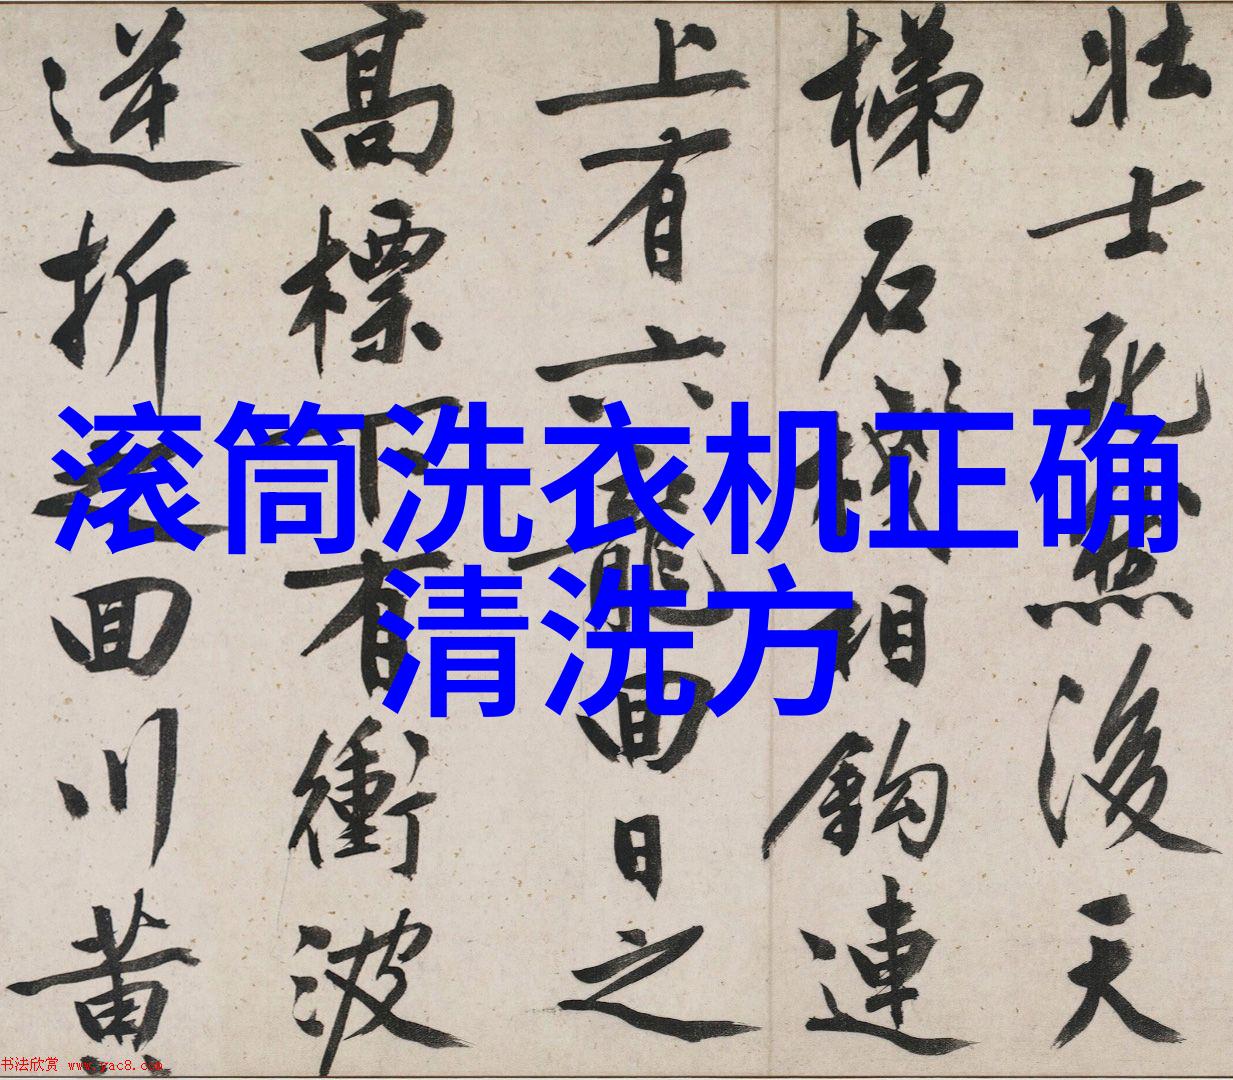 壯士死然後天
梯石棧相鉤連
上有六龍回日之
高標下有衝波
逆折之回川黄
滚筒洗衣机正确
清洗方
书法欣赏 www.yac8.com